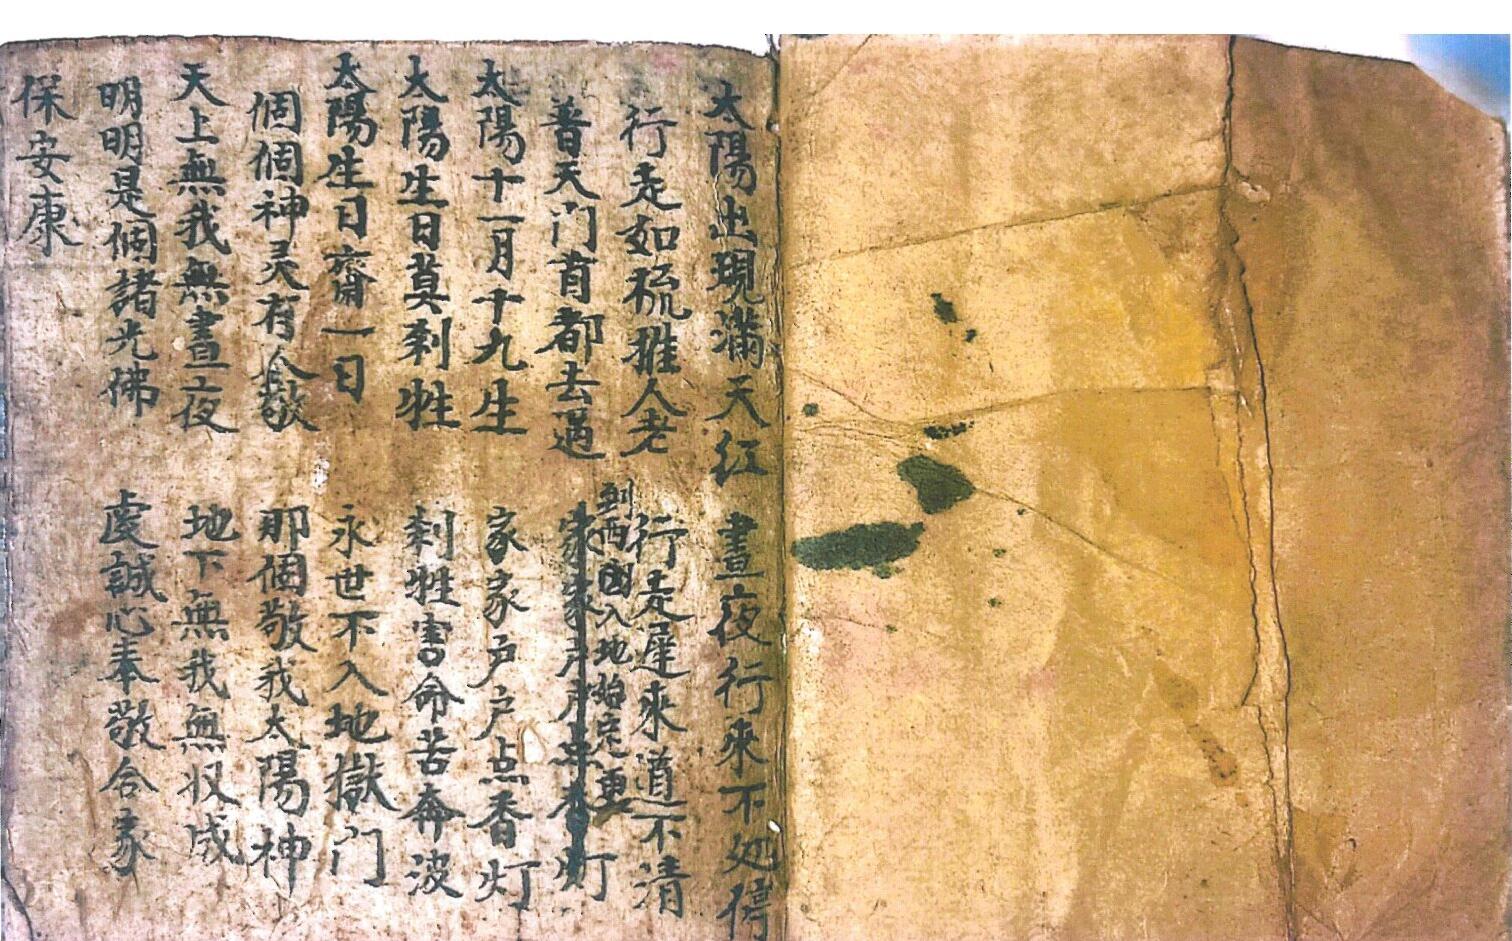 太陽出現滿天红 晝夜行來不処停
行走如梳推人老 行走遅來道不清
到西囯入地始完更
普天门首都去過 家家户户点香灯
太陽十一月十九生 家家户户点香灯
太陽生日莫刹牲 刹牲害命苦奔波
太陽生日齋一日 永世不入地獄门
個個神灵有人敬 那個敬我太陽神
天上無我無晝夜 地下無我無収成
明明是個諸光佛 虔誠心奉敬合家
保安康